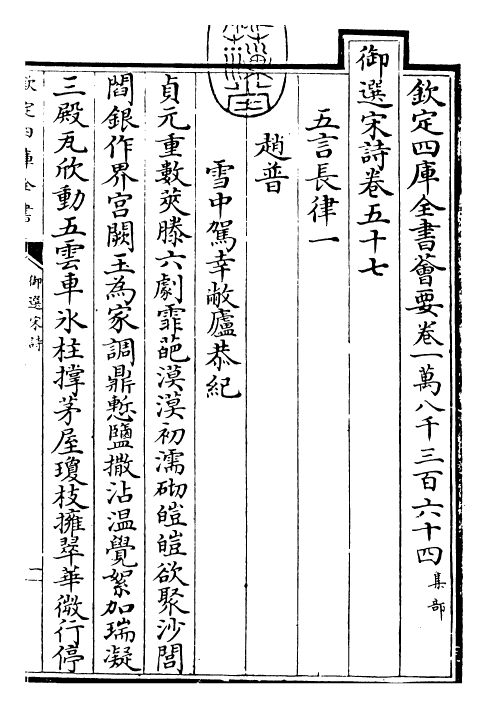 欽定四庫全書薈要卷一萬八千三百六十四 集部
御選宋詩卷五十七
五言長律一
趙普
雪中駕幸敝廬恭紀
貞元重數莢滕六劇霏葩漠漠初濡砌皚皚欲聚沙閭
閻銀作界宮闕玉為家調鼎慙鹽撒沾温覺絮加瑞凝
三殿瓦欣動五雲車氷柱撑茅屋瓊枝擁翠華微行停
欽定四庫全書
御選宋詩